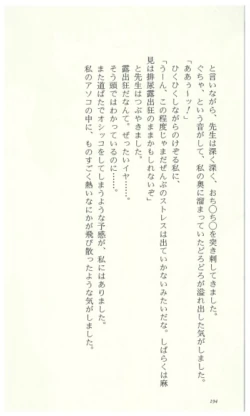 と言いながら、先生は深く深く、おち〇ち〇を突き刺してきました。
ぐちゃ、という音がして、私の奥に溜まっていたどろどろが溢れ出した気がしました。
「ああぅ〜ッ！」
ひくひくしながらのけぞる私に、
「うーん、この程度じゃまだぜんぶのストレスは出ていかないみたいだな。しばらくは麻
見は排尿露出狂のままかもしれないぞ」
と先生はつぶやきました。
露出狂だなんて。ぜったいイヤ……。
そう頭ではわかっているのに……。
また道ばたでオシッコをしてしまうような予感が、私にはありました。
私のアソコの中に、ものすごく熱いなにかが飛び散ったような気がしました。
194